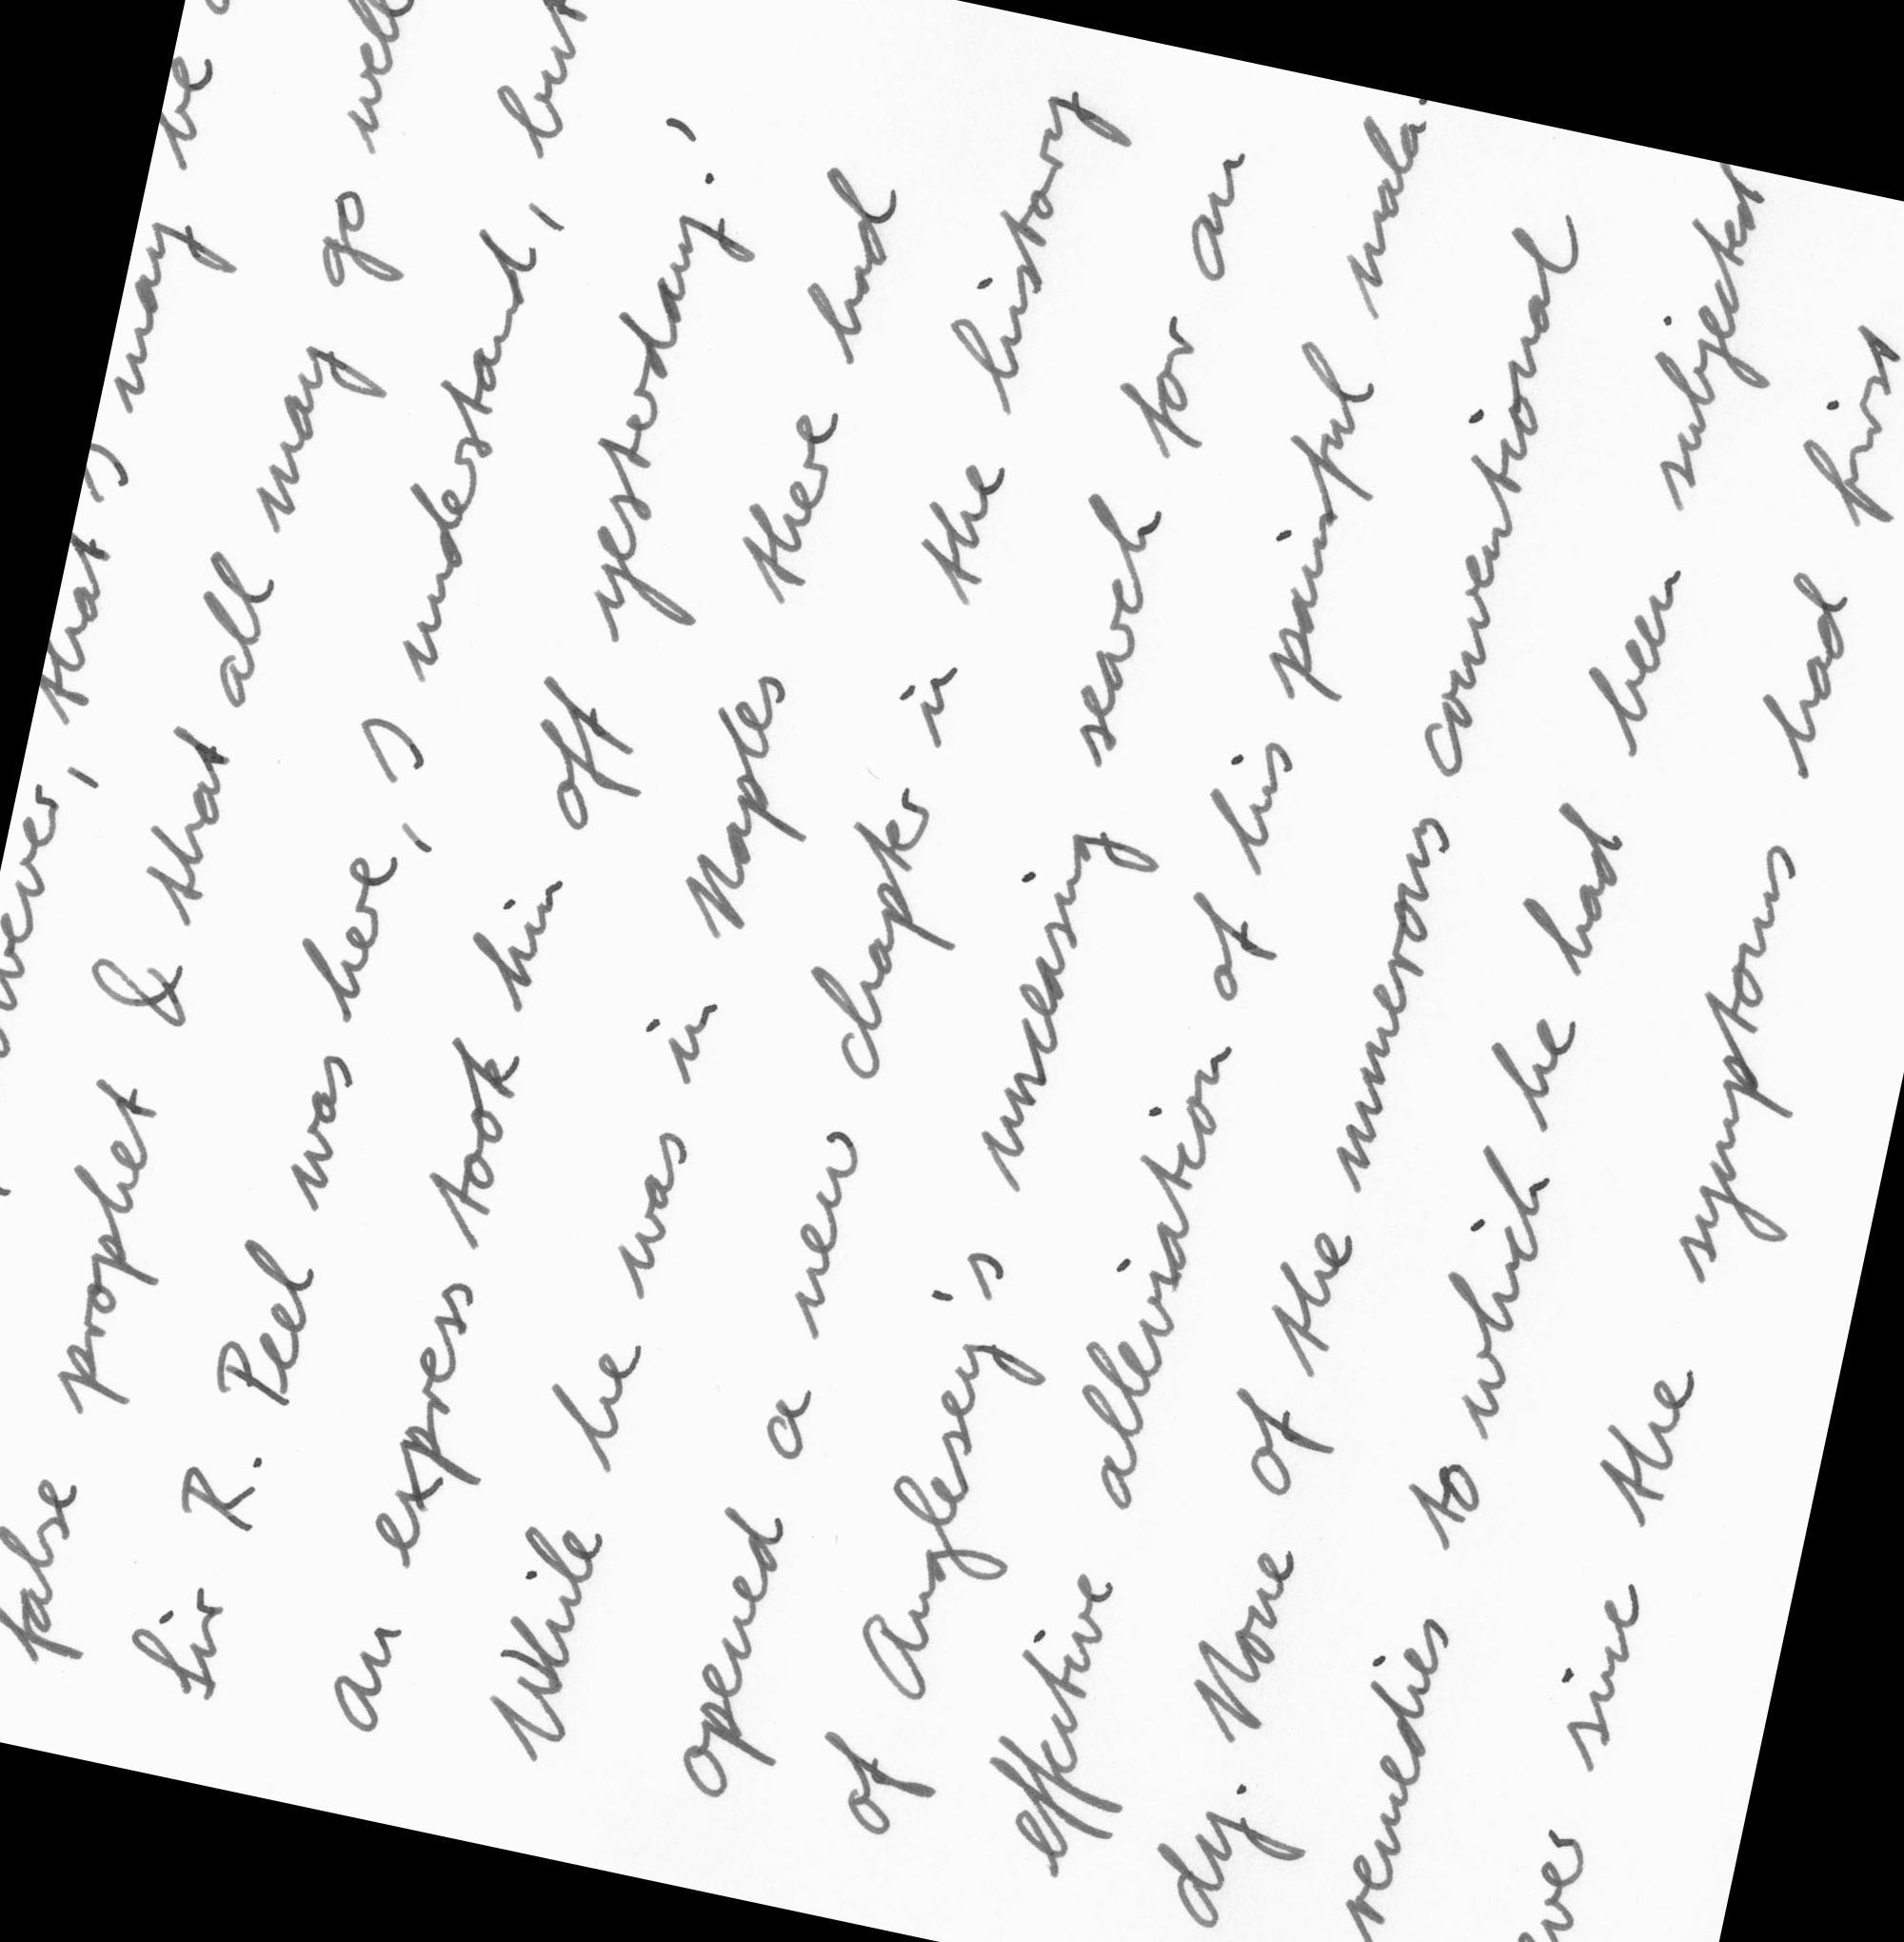 that I may be
false prophet & that all may go well
Sir R. Peel was here, I understand, but
an express took him off yesterday.'
While he was in Naples there had
opened a new chapter in the history
of Anglesey's unceasing search for an
effective alleviation of his painful mala-
dy. None of the numerous conventional
remedies to which he had been subjected
since the symptoms had first